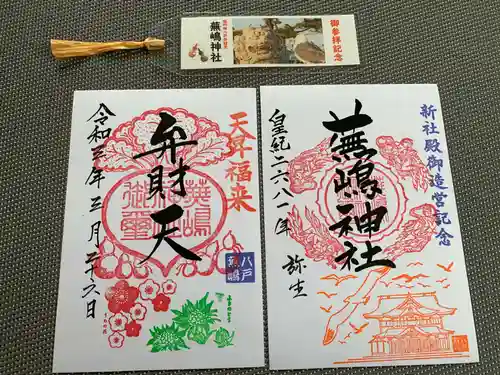 御参拝記念
蕪嶋神社
天昇福来
弁財天
令和三年三月二十六日
蕪嶋
御璽
八戸
蕪嶋
新社殿御造営記念
蕪嶋神社
皇紀二六八一年
弥生